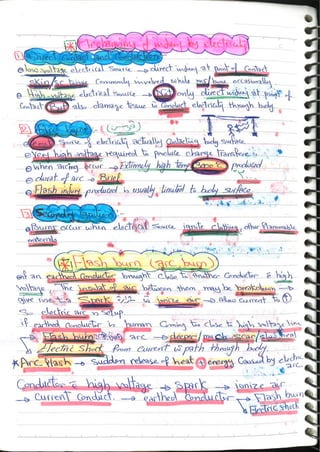 * Mechanism of injury by electricity
1) Direct contact and conduction
• low voltage electrical source → direct injury at point of contact
Skin / SC tissue commonly involved while ms / bone occasionally
• High voltage electrical source → Not only direct injury at point of
contact But also damage tissue to conduct electricity through body
2) Arc
source of electricity actually contacting body surface
• Very high voltage required to produce charge transfere
• when arcing occur → Extremely high temp. produced
• durat of arc → Brief
• Flash injury produced is usually limited to body surface
3) Secondary
• Burns occur when electrical source ignite clothing, other flammable
materials
* Flash burn (arc burn)
an earthed conductor brought close to another conductor high
voltage, The of air between them, may be breakdown →
give rise to Spark ionize air → allow current to
So electric arc is setup
if earthed conductor is human coming too close to high voltage line
→ Flash burn arc → deeper / much scar /
Electric shock from current path through body
* Arc flash → sudden release of heat energy caused by electric
arc.
Conductor high voltage → Spark → ionize air
→ current conduct. → earthed conductor → Flash burn
Electric shock